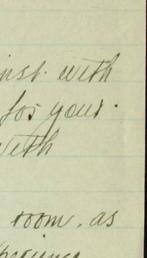 inst. with
for your
with
room. as